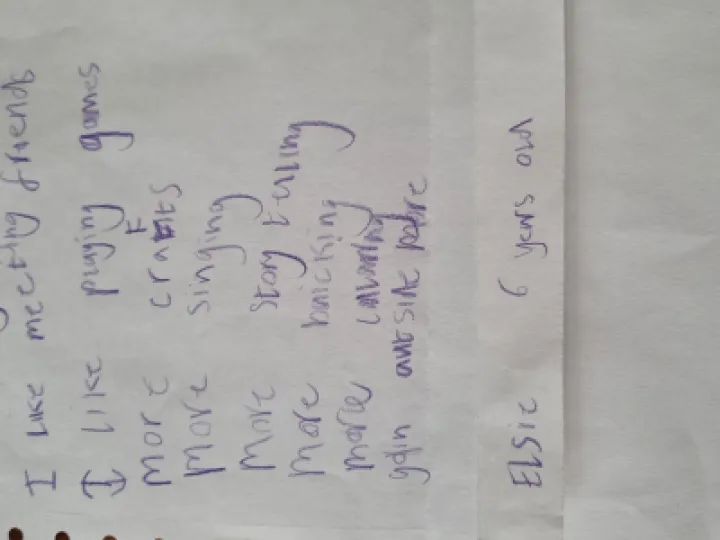 I LIKE meeting friends
I LIKE playing games
more crafts
more singing
more story telling
more
more
gain outside more
ELSIE 6 years old